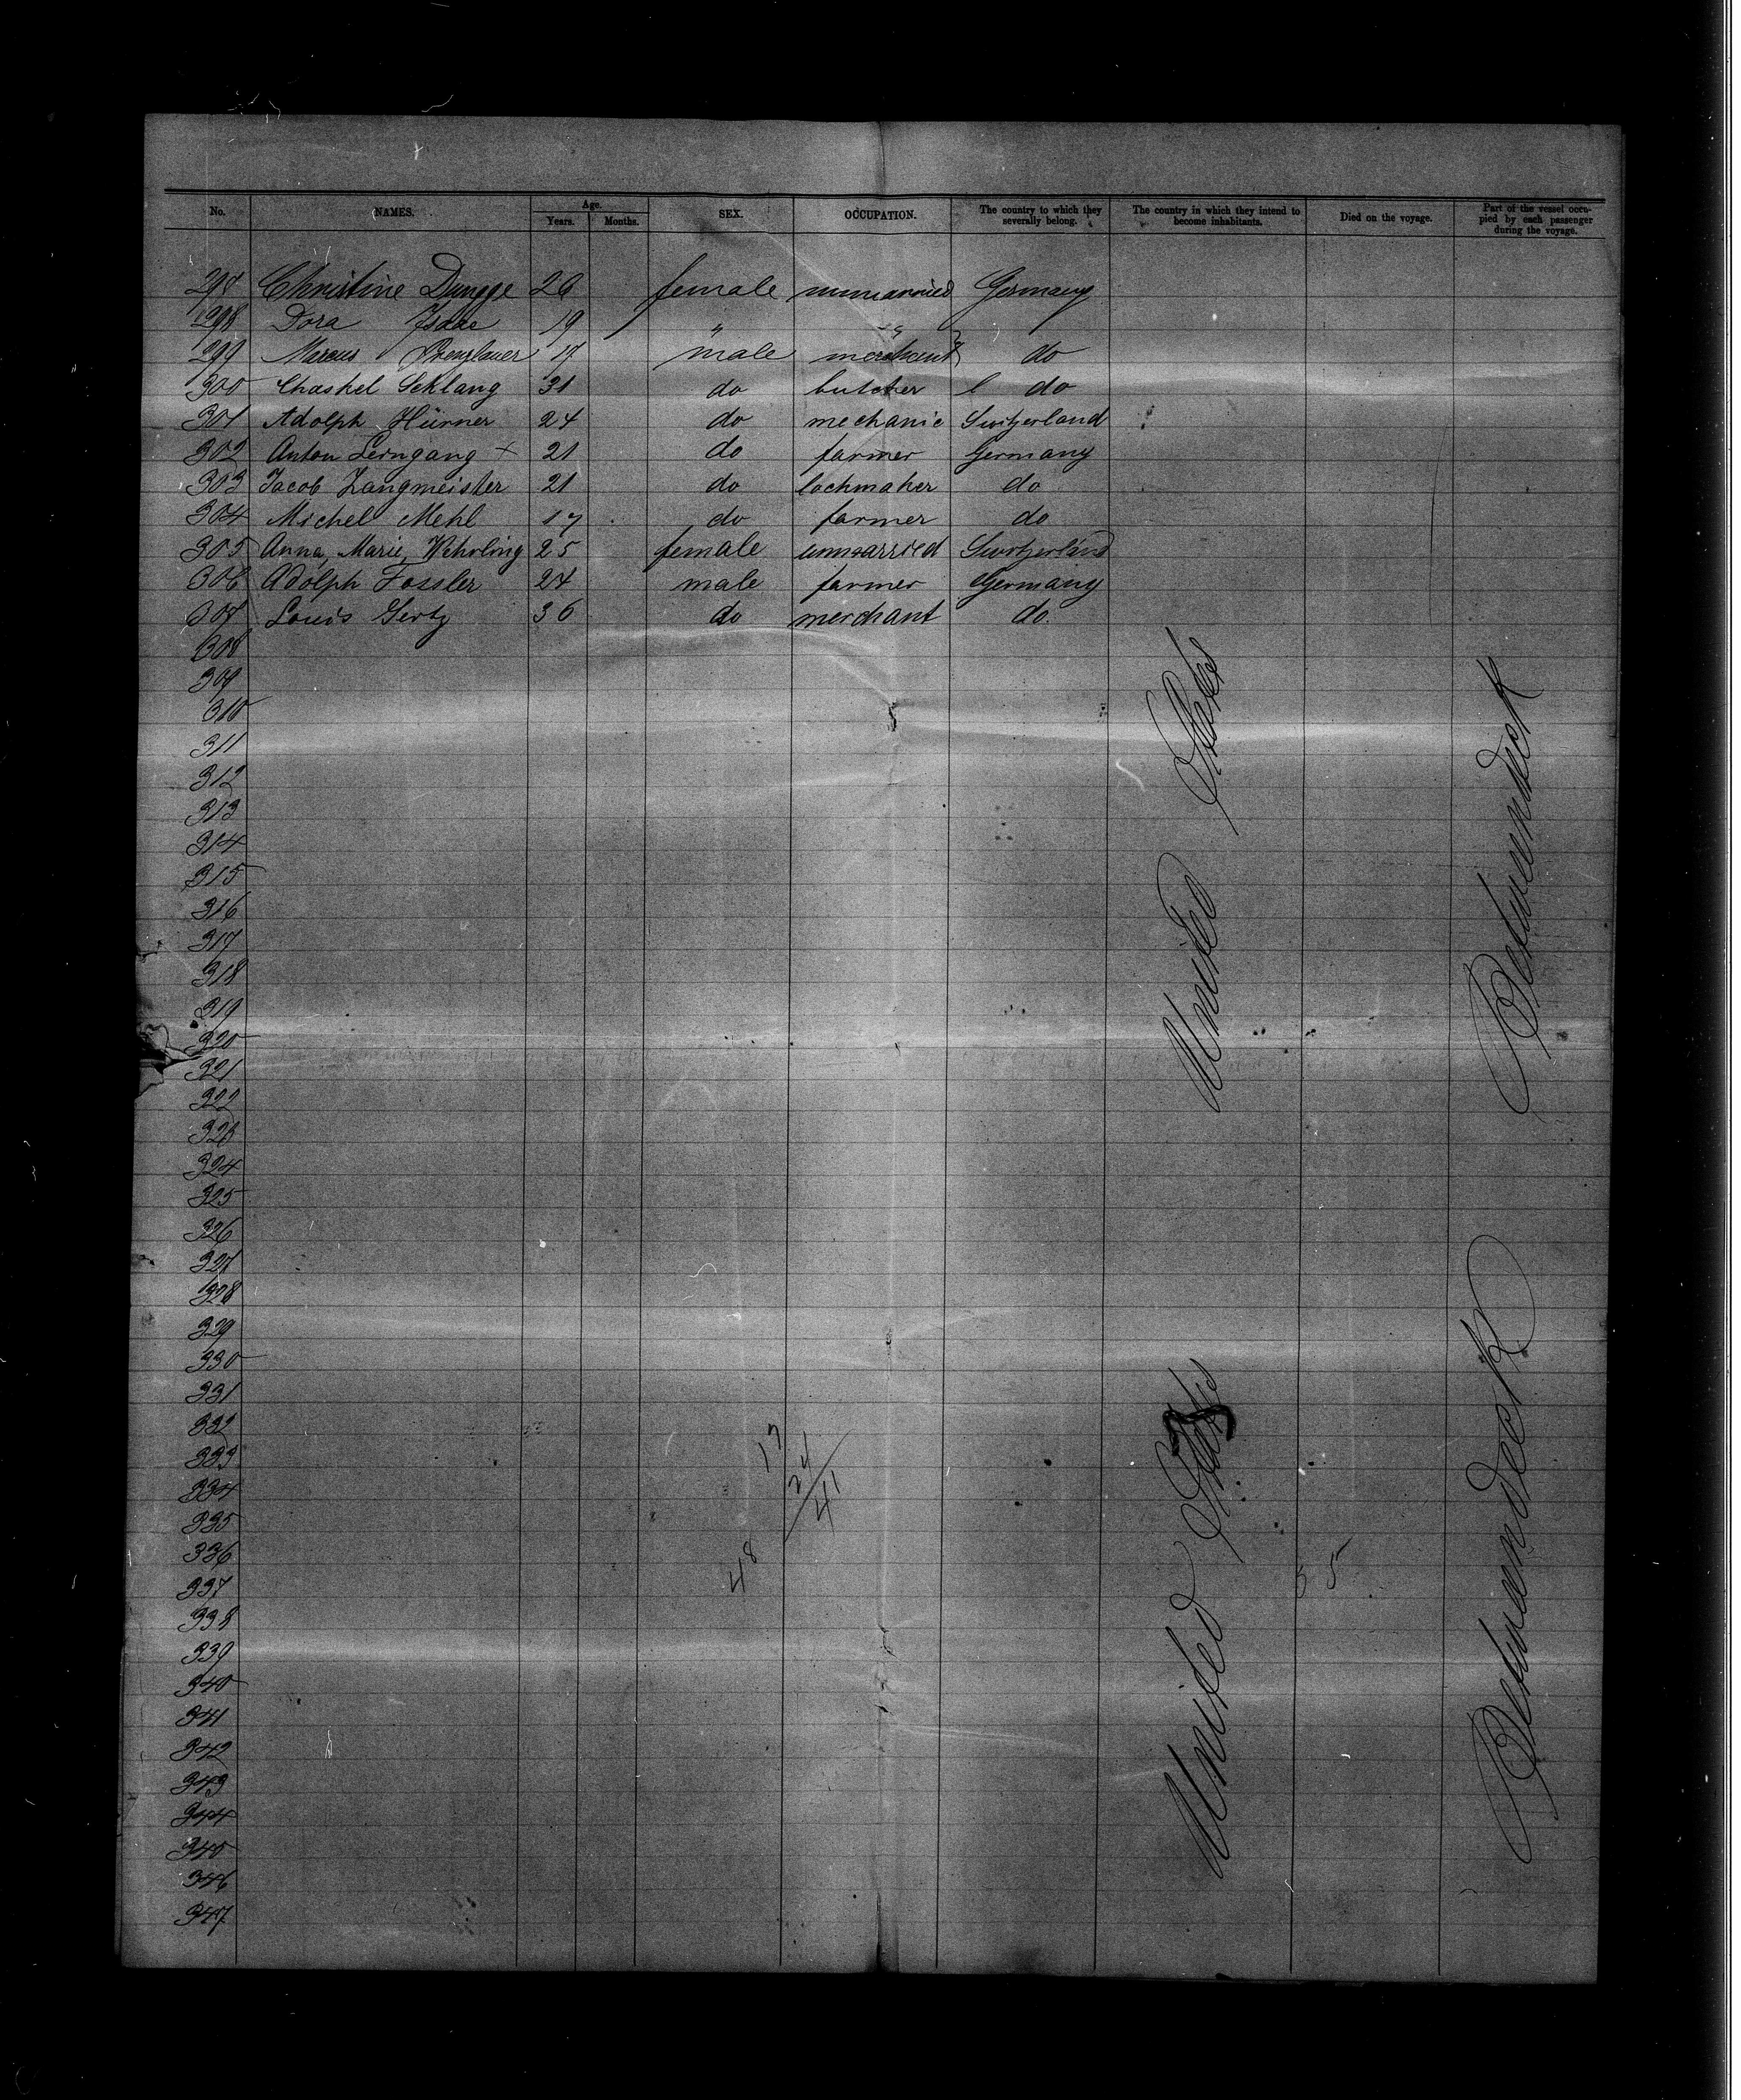 No. NAMES. Age. Years. Months. SEX. OCCUPATION. The country to which they severally belong. The country in which they intend to become inhabitants. Died on the voyage. Part of the vessel occupied by each passenger during the voyage.
297 Christine Dungge 26 female unmarried Germany
298 Dora Isaac 19 " "
299 Marcus Prenzlauer 17 male merchant do
300 Chaskel Seklang 31 do butcher do
301 Adolph Hürner 24 do mechanic Switzerland
302 Anton Lerngang + 21 do farmer Germany
303 Jacob Zangmeister 21 do lockmaker do
304 Michel Mehl 17 do farmer do
305 Anna, Marie, Wehrling 25 female unmarried Switzerland
306 Adolph Fossler 24 male farmer Germany
307 Louis Gertz 36 do merchant do
308
309
310
311
312
313
314
315
316
317
318
319
320
321
322
323
324
325
326
327
328
329
330
331
332
333
334
335
336
337
338
339
340
341
342
343
344
345
346
347
United States
Betweendeck
United States
Betweendeck
17
24
41
48